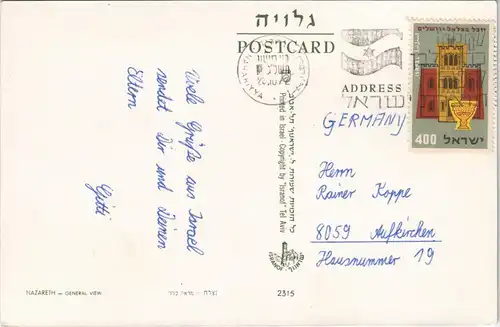 גלויה
POSTCARD
ADDRESS
ישראל
יובל בצלאל - ירושלים
400 ישראל
GERMANY
Viele Grüße aus Israel
sendet Dir und Deinen
Eltern
Gitti
Herrn
Rainer Koppe
8059 Aufkirchen
Hausnummer 19
Printed in Israel Copyright by "Isranof" Tel Aviv
ISRANOF
NAZARETH — GENERAL VIEW
נצרת - מראה כללי
2315